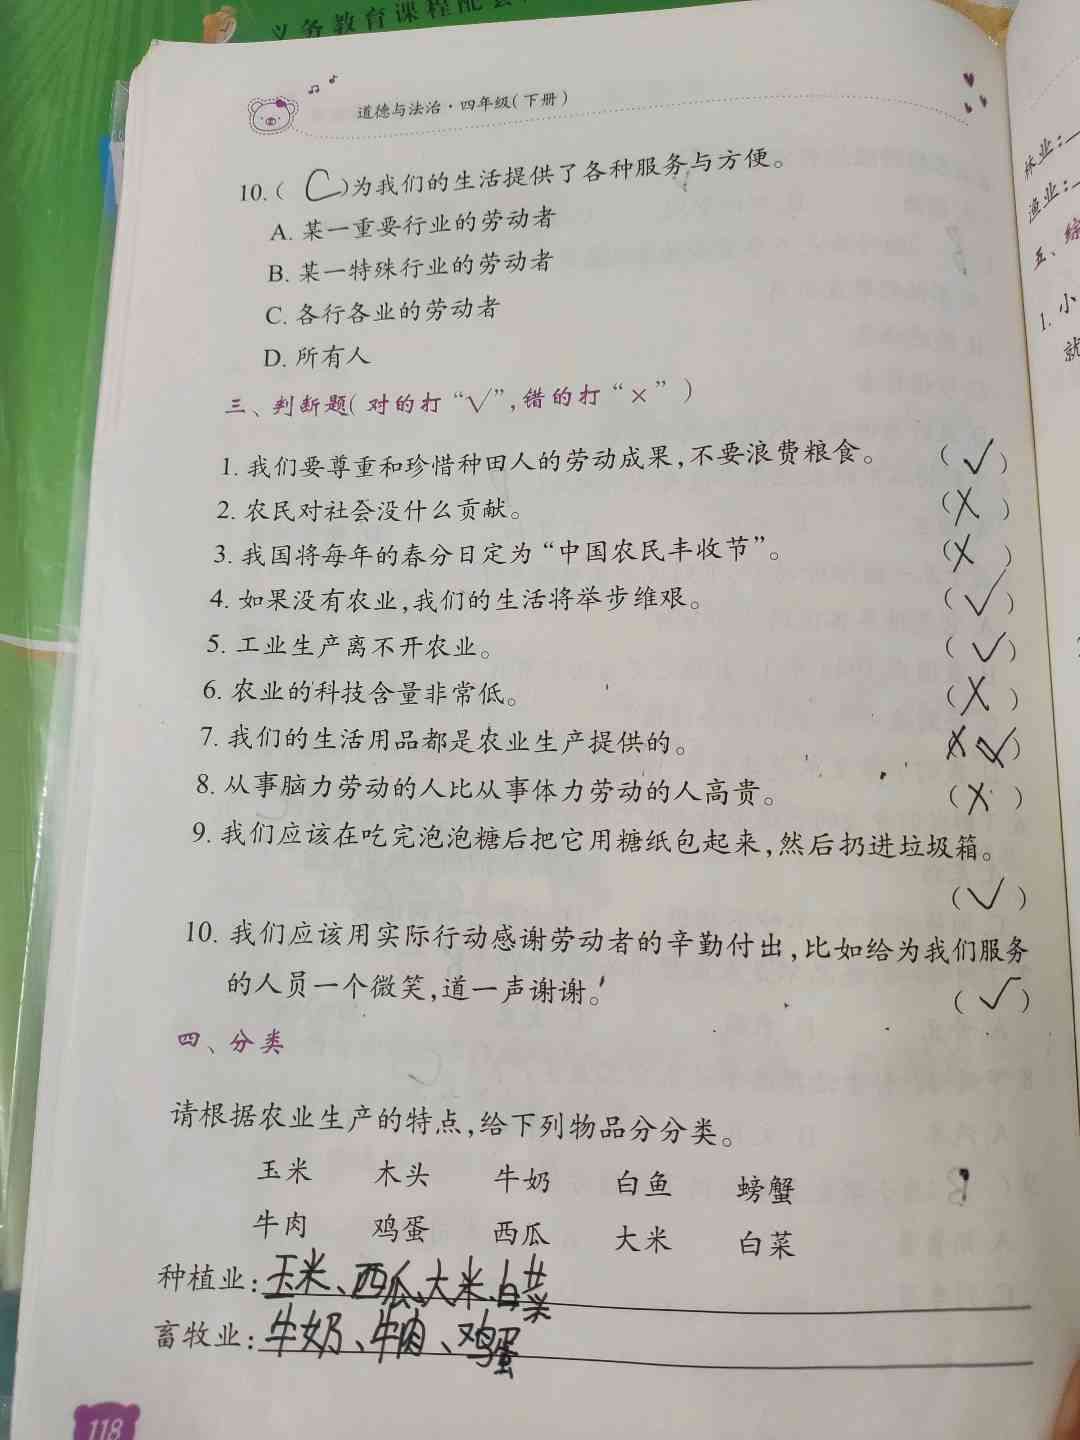 义务教育课程配套
道德与法治·四年级(下册)
10.( C )为我们的生活提供了各种服务与方便。
A. 某一重要行业的劳动者
B. 某一特殊行业的劳动者
C. 各行各业的劳动者
D. 所有人
三、判断题(对的打“√”,错的打“×”)
1. 我们要尊重和珍惜种田人的劳动成果,不要浪费粮食。 (√)
2. 农民对社会没什么贡献。 (X)
3. 我国将每年的春分日定为“中国农民丰收节”。 (X)
4. 如果没有农业,我们的生活将举步维艰。 (√)
5. 工业生产离不开农业。 (√)
6. 农业的科技含量非常低。 (X)
7. 我们的生活用品都是农业生产提供的。
8. 从事脑力劳动的人比从事体力劳动的人高贵。 (X)
9. 我们应该在吃完泡泡糖后把它用糖纸包起来,然后扔进垃圾箱。
(√)
10. 我们应该用实际行动感谢劳动者的辛勤付出,比如给为我们服务
的人员一个微笑,道一声谢谢。 (√)
四、分类
请根据农业生产的特点,给下列物品分分类。
玉米 木头 牛奶 白鱼 螃蟹
牛肉 鸡蛋 西瓜 大米 白菜
种植业:玉米、西瓜、大米、白菜
畜牧业:牛奶、牛肉、鸡蛋
118
林业:
渔业:
五、综
1. 小
就